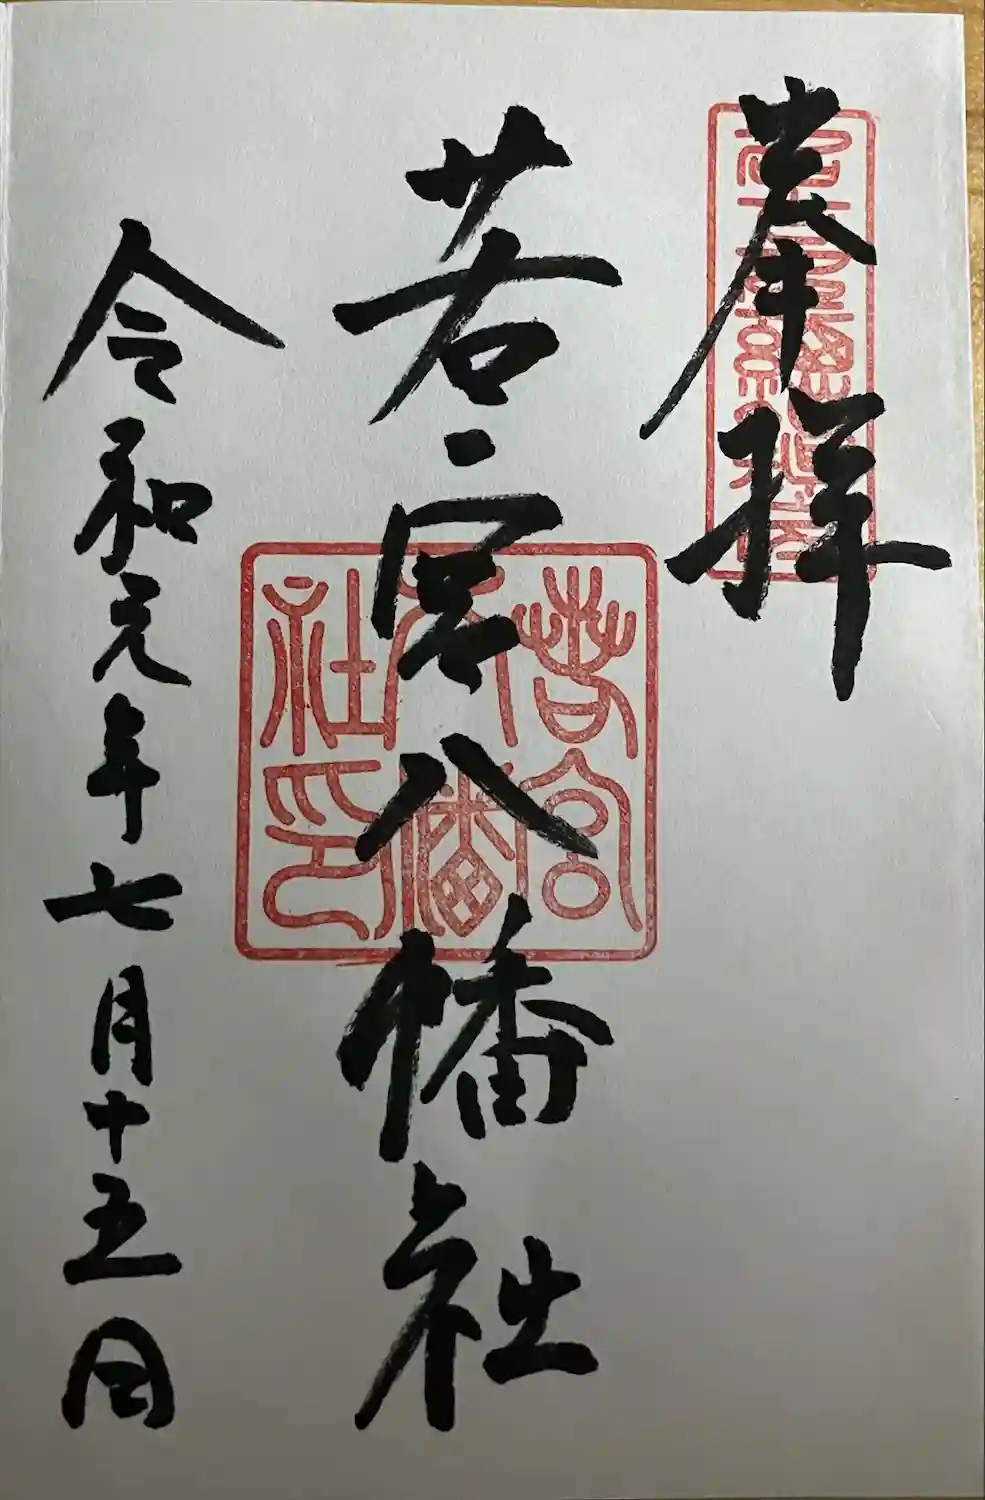 奉拝
若宮八幡社
若宮
八幡
社印
令和元年七月十五日